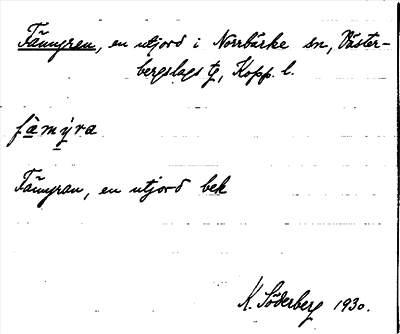 Fämyren, en utjord i Norrbärke sn, Väster-
bergslags tg, Kopp. l.
fämýra
Fämyran, en utjord bek
K. Söderberg 1930.